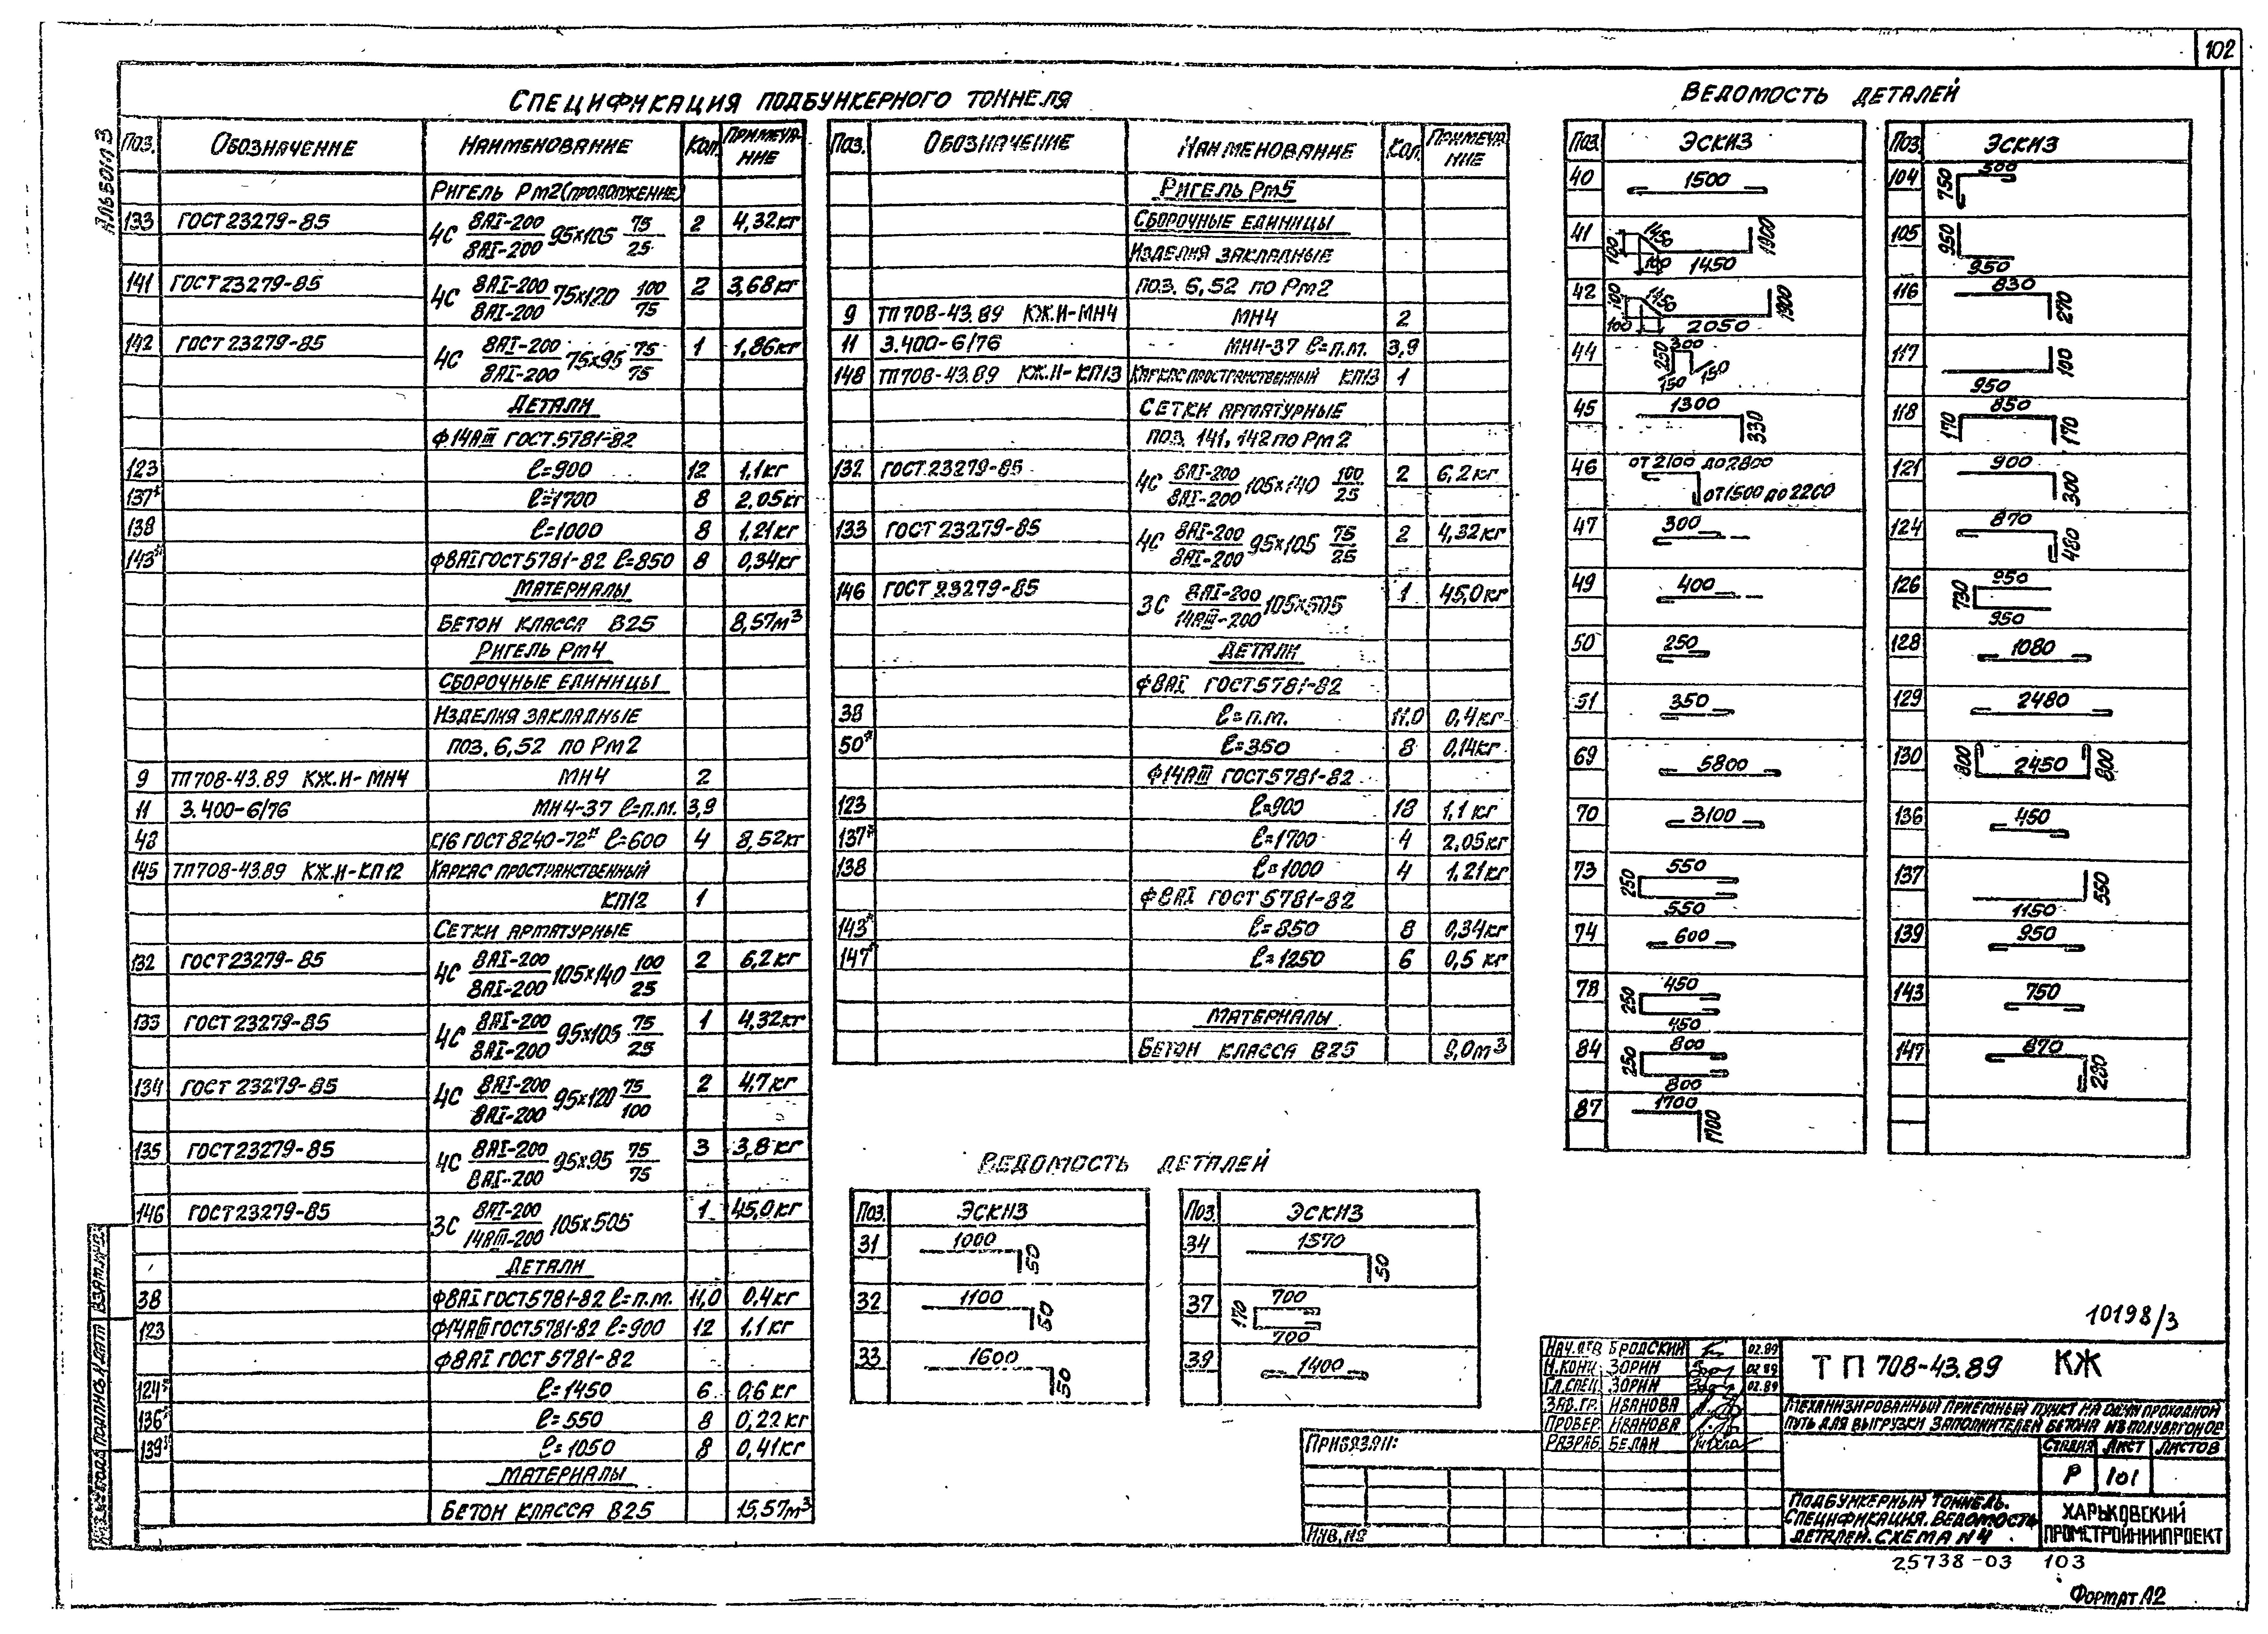 102
Альбом 3
Спецификация подбункерного тоннеля
Поз. Обозначение Наименование Кол. Примечание
Ригель Рм2 (продолжение)
133 ГОСТ 23279-85 4С 8АI-200/8АI-200 95×105 75/25 2 4,32кг
141 ГОСТ 23279-85 4С 8АI-200/8АI-200 75×120 100/75 2 3,68кг
142 ГОСТ 23279-85 4С 8АI-200/8АI-200 75×95 75/75 1 1,86кг
Детали
ф14АIII ГОСТ 5781-82
123 ℓ=900 12 1,1кг
137* ℓ=1700 8 2,05кг
138 ℓ=1000 8 1,21кг
143* ф8АI ГОСТ 5781-82 ℓ=850 8 0,34кг
Материалы
Бетон класса В25 8,57м³
Ригель Рм4
Сборочные единицы
Изделия закладные
поз. 6,52 по Рм2
9 ТП 708-43.89 КЖ.И-МН4 МН4 2
11 3.400-6/76 МН4-37 ℓ=п.м. 3,9
48 С16 ГОСТ 8240-72* ℓ=600 4 8,52кг
145 ТП 708-43.89 КЖ.И-КП12 Каркас пространственный
КП12 1
Сетки арматурные
132 ГОСТ 23279-85 4С 8АI-200/8АI-200 105×140 100/25 2 6,2кг
133 ГОСТ 23279-85 4С 8АI-200/8АI-200 95×105 75/25 1 4,32кг
134 ГОСТ 23279-85 4С 8АI-200/8АI-200 95×120 75/100 2 4,7кг
135 ГОСТ 23279-85 4С 8АI-200/8АI-200 95×95 75/75 3 3,8кг
146 ГОСТ 23279-85 3С 8АI-200/14АIII-200 105×505 1 45,0кг
Детали
38 ф8АI ГОСТ 5781-82 ℓ=п.м. 11,0 0,4кг
123 ф14АIII ГОСТ 5781-82 ℓ=900 12 1,1кг
ф8АI ГОСТ 5781-82
124* ℓ=1450 6 0,6кг
136* ℓ=550 8 0,22кг
139* ℓ=1050 8 0,41кг
Материалы
Бетон класса В25 15,57м³
Поз. Обозначение Наименование Кол. Примечание
Ригель Рм5
Сборочные единицы
Изделия закладные
поз. 6,52 по Рм2
9 ТП 708-43.89 КЖ.И-МН4 МН4 2
11 3.400-6/76 МН4-37 ℓ=п.м. 3,9
148 ТП 708-43.89 КЖ.И-КП13 Каркас пространственный КП13 1
Сетки арматурные
поз. 141, 142 по Рм2
132 ГОСТ 23279-85 4С 8АI-200/8АI-200 105×140 100/25 2 6,2кг
133 ГОСТ 23279-85 4С 8АI-200/8АI-200 95×105 75/25 2 4,32кг
146 ГОСТ 23279-85 3С 8АI-200/14АIII-200 105×505 1 45,0кг
Детали
ф8АI ГОСТ 5781-82
38 ℓ=п.м. 11,0 0,4кг
50* ℓ=350 8 0,14кг
ф14АIII ГОСТ 5781-82
123 ℓ=900 18 1,1кг
137* ℓ=1700 4 2,05кг
138 ℓ=1000 4 1,21кг
ф8АI ГОСТ 5781-82
143* ℓ=850 8 0,34кг
147* ℓ=1250 6 0,5кг
Материалы
Бетон класса В25 9,0м³
Ведомость деталей
Поз. Эскиз
31 1000 50
32 1100 50
33 1600 50
Поз. Эскиз
34 1570 50
37 170 700 700
39 1400
Ведомость деталей
Поз Эскиз
40 1500
41 100 1450 100 1450 1900
42 100 1450 100 2050 1900
44 250 300 150 150
45 1300 330
46 от 2100 до 2800 от 1500 до 2200
47 300
49 400
50 250
51 350
69 5800
70 3100
73 250 550 550
74 600
78 250 450 450
84 250 800 800
87 1700 1700
Поз. Эскиз
104 750 500
105 950 950
116 830 270
117 950 100
118 170 850 170
121 900 300
124 870 480
126 730 950 950
128 1080
129 2480
130 800 2450 800
136 450
137 1150 550
139 950
143 750
147 870 280
10198/3
Нач.отд. Бродский 02.89
Н.конц. Зорин 02.89
Гл.спец. Зорин 02.89
Зав.гр. Иванова
Провер. Иванова
Разраб. Белан
ТП 708-43.89 КЖ
Механизированный приемный пункт на один проходной
путь для выгрузки заполнителей бетона из полувагонов
Стадия Лист Листов
Р 101
Подбункерный тоннель.
Спецификация. Ведомость
деталей. Схема N4
Харьковский
Промстройниипроект
Привязан:
Инв.№
Подпись и дата
Взам.инв.
25738-03 103
Формат А2